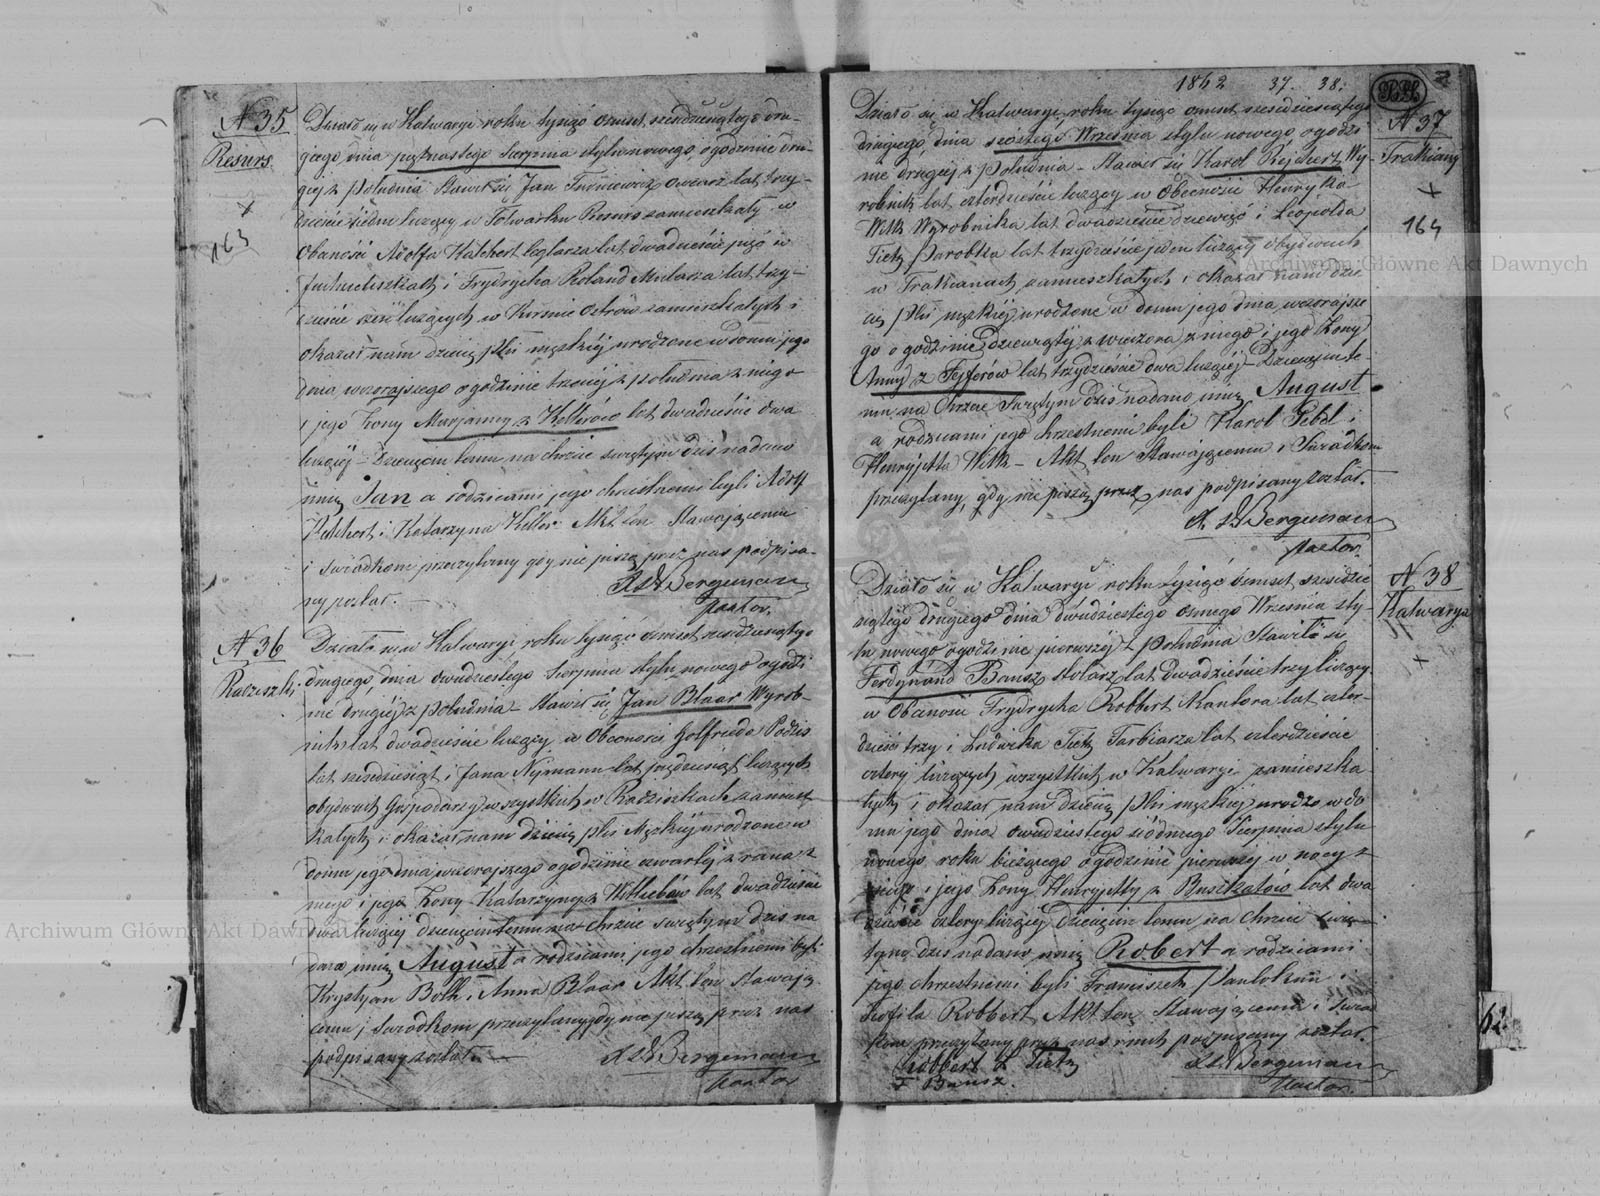 N 35
Resurs.
163
Działo się w Kalwaryi roku tysiąc osmset sześćdziesiątego dru-
giego, dnia piętnastego Sierpnia stylu nowego, o godzinie dru-
giej z południa Stawił się Jan owczarz lat trzy-
dzieści siedm liczący w Folwarku Resurs zamieszkały w
Obecności Adolfa lat dwadzieścia pięć w
i Frydrycha Roland Mularza lat trzy-
dzieście sześć liczących w zamieszkałych i
okazał nam dziecię płci męzkiéj urodzone w domu jego
dnia wczorajszego o godzinie trzeciej z południa z niego
i jego Żony Maryanny z Kellerów lat dwadzieście dwa
liczącéj – Dziecięciu temu na chrzcie świętym dziś nadano
imię Jan a rodzicami jego chrzestnemi byli Adolf
i Katarzyna Keller. Akt ten Stawającemu
i świadkom przeczytany gdy nie piszą przez nas podpisa-
ny został.
Bergeman
Pastor.
N 36
Działo się w Kalwaryi roku tysiąc osmset sześćdziesiątego
drugiego, dnia dwudziestego Sierpnia stylu nowego o godzi
nie drugiéj z południa – Stawił się Jan Blaar Wyrob-
nik lat dwadzieście liczący w Obecności Gotfrieda
lat sześćdziesiąt i Jana Nijmann lat pięćdziesiąt liczących
obydwóch Gospodarzy wszystkich w zamiesz-
kałych i okazał nam dziecię płci Męzkiéj urodzone w
domu jego dnia wczorajszego o godzinie czwartéj z rana z
niego i jego Żony Katarzyny z lat dwadzieście
dwa liczącéj dziecięciu temu na chrzcie świętym dziś na
dano imię August a rodzicami jego chrzestnemi byli
Krystyan Both i Anna Blaar Akt ten Stawają
cemu i Świadkom przeczytany gdy nie piszą przez nas
podpisany został.
Bergeman
Pastor
1862 37. 38.
N 37
Trakiany
164
Działo się w Kalwaryi roku tysiąc osmset sześćdziesiątego
drugiego, dnia szóstego Września stylu nowego o godzi
nie drugiej z południa – Stawił się Karol Rejchert Wy-
robnik lat czterdzieście liczący w Obecności Henryka
Witk Wyrobnika lat dwadzieście dziewięć i Leopolda
Tietz Parobka lat trzydzieście jeden liczący obydwuch
w Trakianach zamieszkałych i okazał nam dzie
cię płci męzkiéj urodzone w domu jego dnia wczorajsze
go o godzinie dziewiątéj z wieczora z niego i jego Żony
Anny z Fejferów lat trzydzieście dwa liczącéj – Dziecięciu te-
mu na Chrzcie Świętym dziś nadano imię August
a rodzicami jego chrzestnemi byli Karol Gebel i
Henryjetta Witk – Akt ten Stawającemu i Świadkom
przeczytany, gdy nie piszą przez nas podpisany został.
Bergeman
Pastor.
N 38
Kalwarya
Działo się w Kalwaryi roku tysiąc ósmset sześćdzie
siątego drugiego dnia dwudziestego osmego Września sty-
lu nowego o godzinie pierwszéj z południa Stawił się
Ferdynand Bansz stolarz lat dwadzieście trzy liczący
w Obecności Frydrycha Robbert Kantora lat czter-
dzieści trzy i Ludwika Tietz Farbiarza lat czterdzieście
cztery liczących wszystkich w Kalwaryi zamieszka-
łych i okazał nam Dziecię płci męzkiej urodzo w do
mu jego dnia dwudziestego siódmego Sierpnia stylu
nowego roku bieżącego o godzinie pierwszéj w nocy z
niego i jego Żony Henryjetty z lat dwa
dzieście cztery liczącéj Dziecięciu temu na Chrzcie świę-
tym dziś nadano imię Robert a rodzicami
jego chrzestnemi byli Franciszek i
Teofila Robbert Akt ten Stawającemu i Świad
kom przeczytany przez nas podpisany został.
Robbert L Tietz
F Bansz.
Bergeman
Pastor.
62
Archiwum Główne Akt Dawnych
Archiwum Główne Akt Dawnych